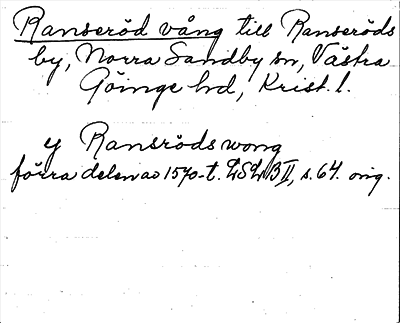 Ranseröd vång till Ranseröds
by, Norra Sandby sn, Västra
Göinge hd, Krist. l.
y Ransröds wong
förra delen av 1570-t. LSLB II, s. 64. orig.